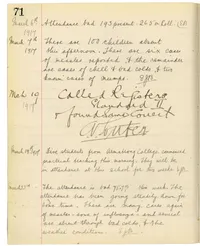 71
March 6th Attendance bad 195 present. 265 on Roll.
1917
March 7th There are 100 children absent
1917 this afternoon. There are six cases
of measles reported & the remainder
are cases of chill & bad colds & two
known cases of mumps.
Mar 10 Called Registers
1917 Standard II
& found same correct
March 19th Five students from Armstrong College commenced
practical teaching this morning. They will be
in attendance at this school for two weeks
The attendance is bad this week. The
attendance has been going steadily down for
some time. There are many cases again
of measles, some of influenza and several
are absent through bad colds &
weather conditions.